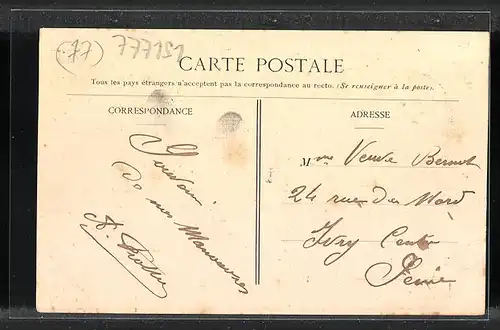 (77) 777151
CARTE POSTALE
Tous les pays étrangers n'acceptent pas la correspondance au recto. (Se renseigner à la poste).
CORRESPONDANCE
ADRESSE
Souvenir
De nos Manoeuvres
A.
Mme Veuve Bernot
24 rue du Nord
Ivry Centre
Seine